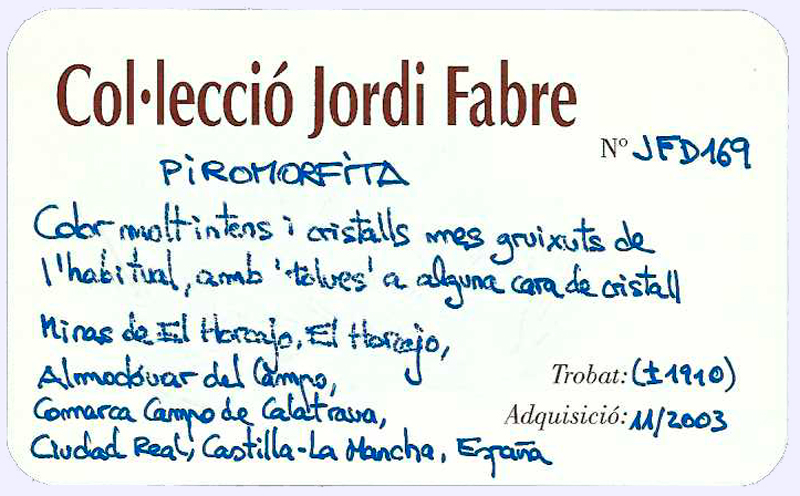 Col·lecció Jordi Fabre
Nº JFD169
PIROMORFITA
Color molt intens i cristalls mes gruixuts de
l'habitual, amb 'tolves' a alguna cara de cristall
Minas de El Horcajo, El Horcajo,
Almodóvar del Campo,
Trobat: (±1910)
Comarca Campo de Calatrava,
Adquisició: 11/2003
Ciudad Real, Castilla-La Mancha, España